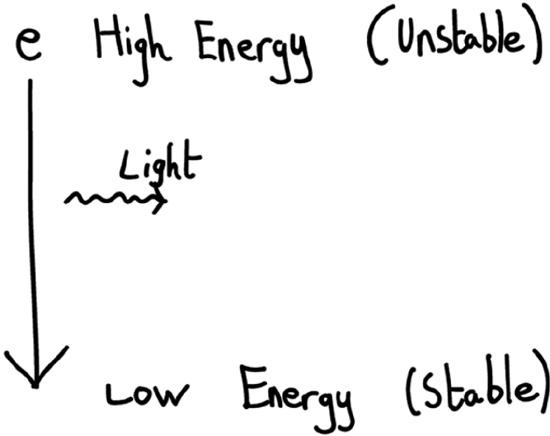 e High Energy (Unstable)
Light
Low Energy (Stable)